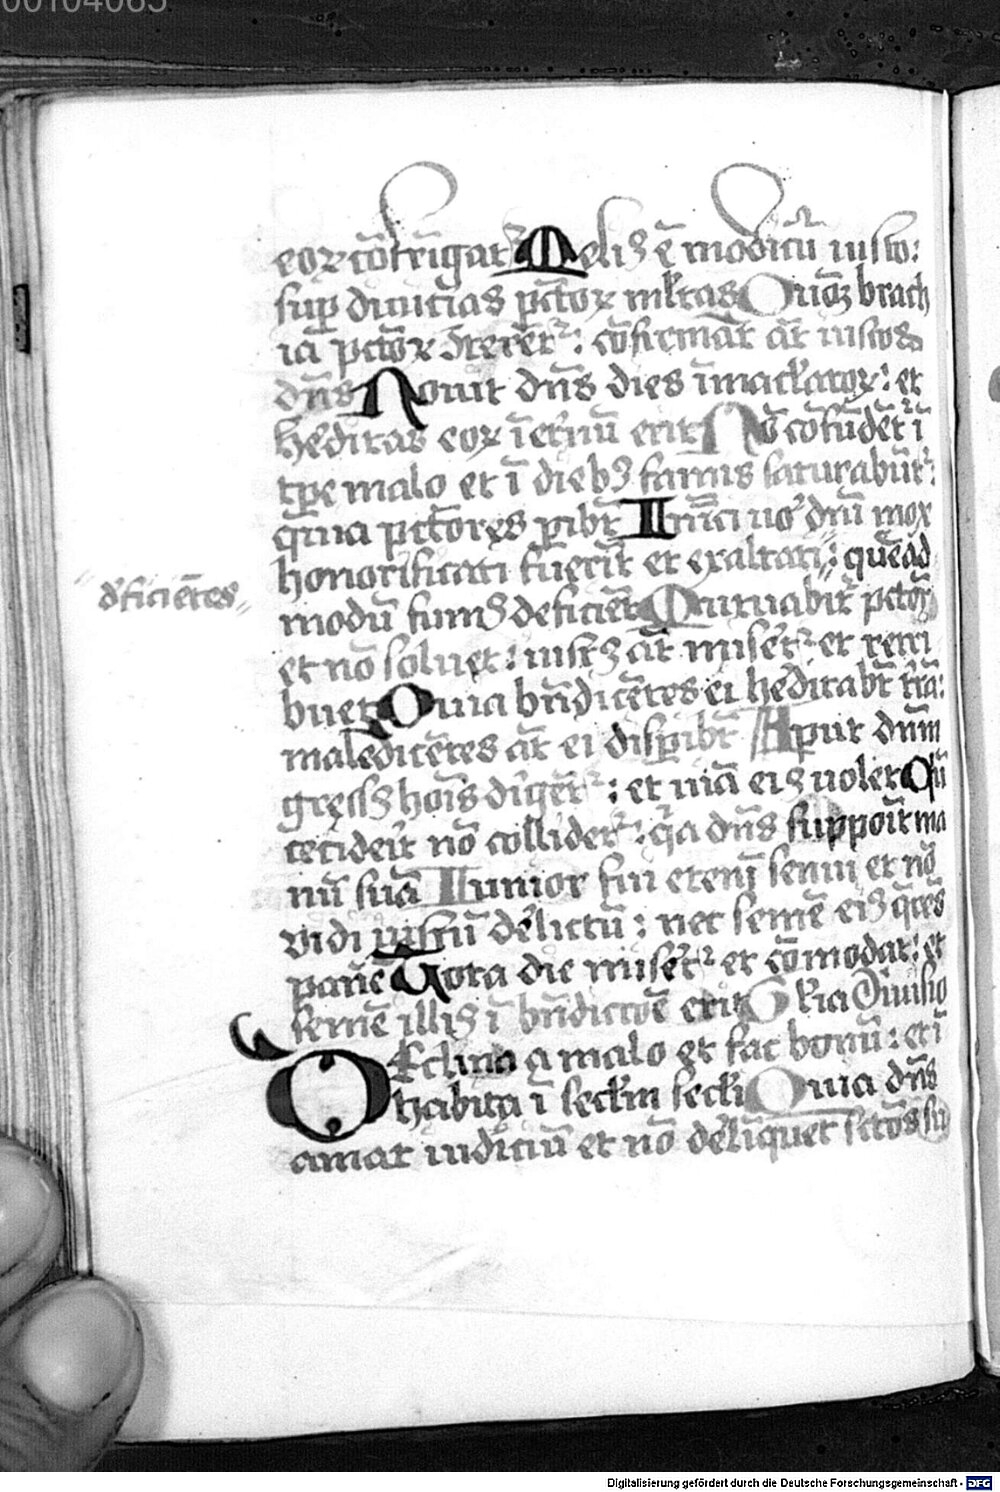 00104065
eoꝝ cōfrīgat᷑ Meliꝰ ē modicū iusto:
sup̱ diuicias pctōꝝ mĺtas Quoꝫ brach
ia pctōꝝ ɔterēt᷑: cōfirmat āt iustos
dn̄s Nouit dn̄s dies īmacĺatoꝝ: et
h̓editas eoꝝ ī et̓nū erit Nō cōfūdēt᷑ ī
tp̄e malo et ī diebꝰ famis saturabūt᷑:
quia pctōres p̱ibt̄ Inīci uo᷑ dn̄i mox
honorificati fu̓erīt et exaltati: quēad
modū fumꝰ deficiēt Mutuabit᷑ pctōr
et nō soluet: iustꝰ āt miseret᷑ et retri
buet Quia bn̄dicētes ei h̓editabt̄ t̓rā:
maledicētes āt ei disp̱ibt̄ Aput dn̄m
gressꝰ hoīs dīgēt᷑: et uiā eiꝰ uolet Cū
cecideīt nō collidet᷑: q̄a dn̄s suppoīt ma
nū suā Iunior fui etenī senui et nō
vidi iustū de̓lictū: nec semē eiꝰ q̄rēs
panē Tota die miseret᷑ et cōmodat: et
semē illiꝰ ī bn̄dictōe erit Gĺia Diuisio
Declina a malo et fac bonū: et ī
habita ī secĺm secĺi Quia dn̄s
amat iudiciū et nō de̓līquet sctōs su
d̓ficiētes
Digitalisierung gefördert durch die Deutsche Forschungsgemeinschaft - DFG